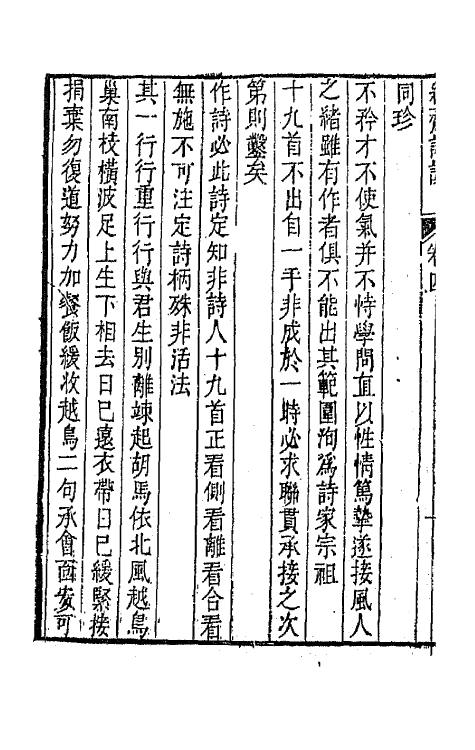 卷四
同珍
不矜才不使氣并不恃學問直以性情篤摯遂接風人
之緒雖有作者俱不能出其範圍洵爲詩家宗祖
十九首不出自一手非成於一時必求聯貫承接之次
第則鑿矣
作詩必此詩定知非詩人十九首正看側看離看合看
無施不可注定詩柄殊非活法
其一行行重行行與君生別離竦起胡馬依北風越鳥
巢南枝橫波足上生下相去日已遠衣帶日已緩緊接
捐棄勿復道努力加餐飯緩收越鳥二句承會面安可